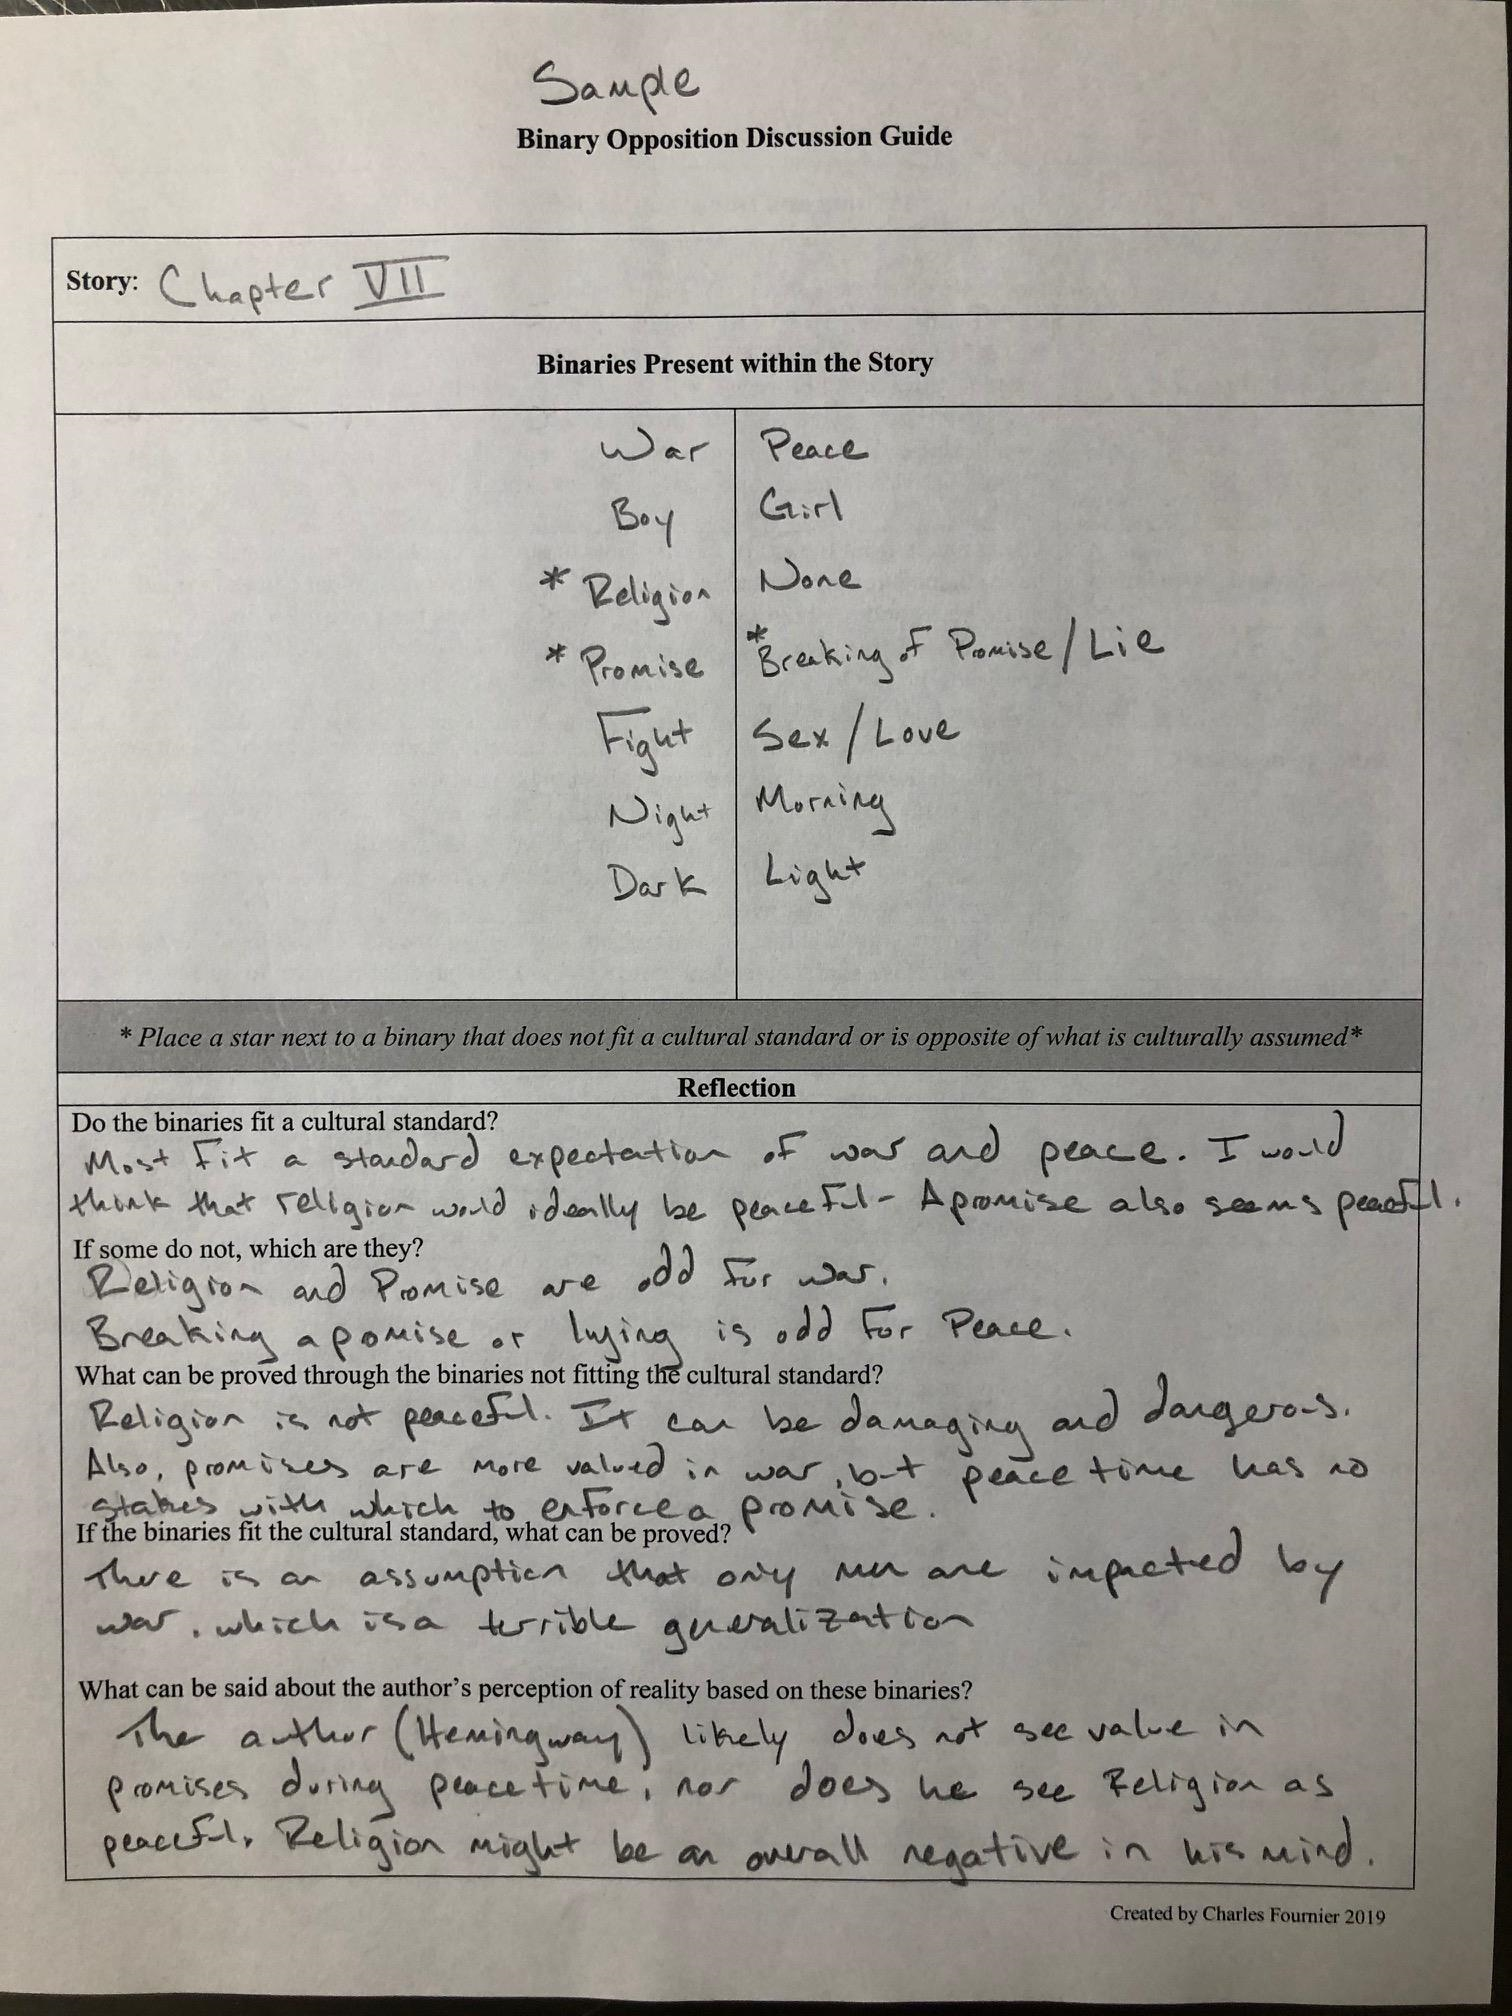 Sample
Binary Opposition Discussion Guide
Story: Chapter VII
Binaries Present within the Story
War Peace
Boy Girl
* Religion None
* Promise * Breaking of Promise / Lie
Fight Sex / Love
Night Morning
Dark Light
* Place a star next to a binary that does not fit a cultural standard or is opposite of what is culturally assumed*
Reflection
Do the binaries fit a cultural standard?
Most fit a standard expectation of war and peace. I would
think that religion would ideally be peaceful - A promise also seems peaceful.
If some do not, which are they?
Religion and Promise are odd for war.
Breaking a pomise or lying is odd for Peace.
What can be proved through the binaries not fitting the cultural standard?
Religion is not peaceful. It can be damaging and dangerous.
Also, promises are more valued in war, but peace time has no
stakes with which to enforce a promise.
If the binaries fit the cultural standard, what can be proved?
There is an assumption that only men are impacted by
war, which is a terrible generalization
What can be said about the author's perception of reality based on these binaries?
The author (Hemingway) likely does not see value in
promises during peacetime, nor does he see Religion as
peaceful. Religion might be an overall negative in his mind.
Created by Charles Fournier 2019